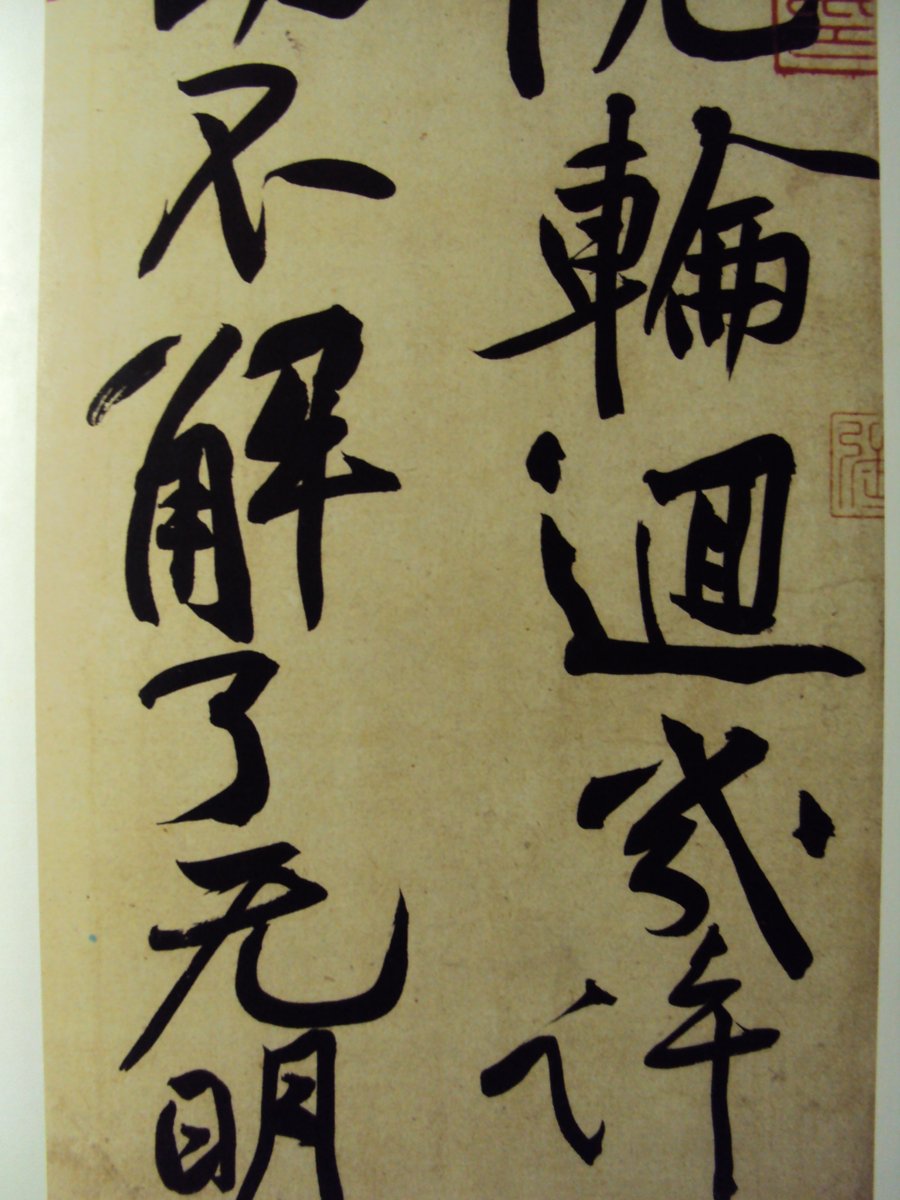 輪迴幾許
不解了无明